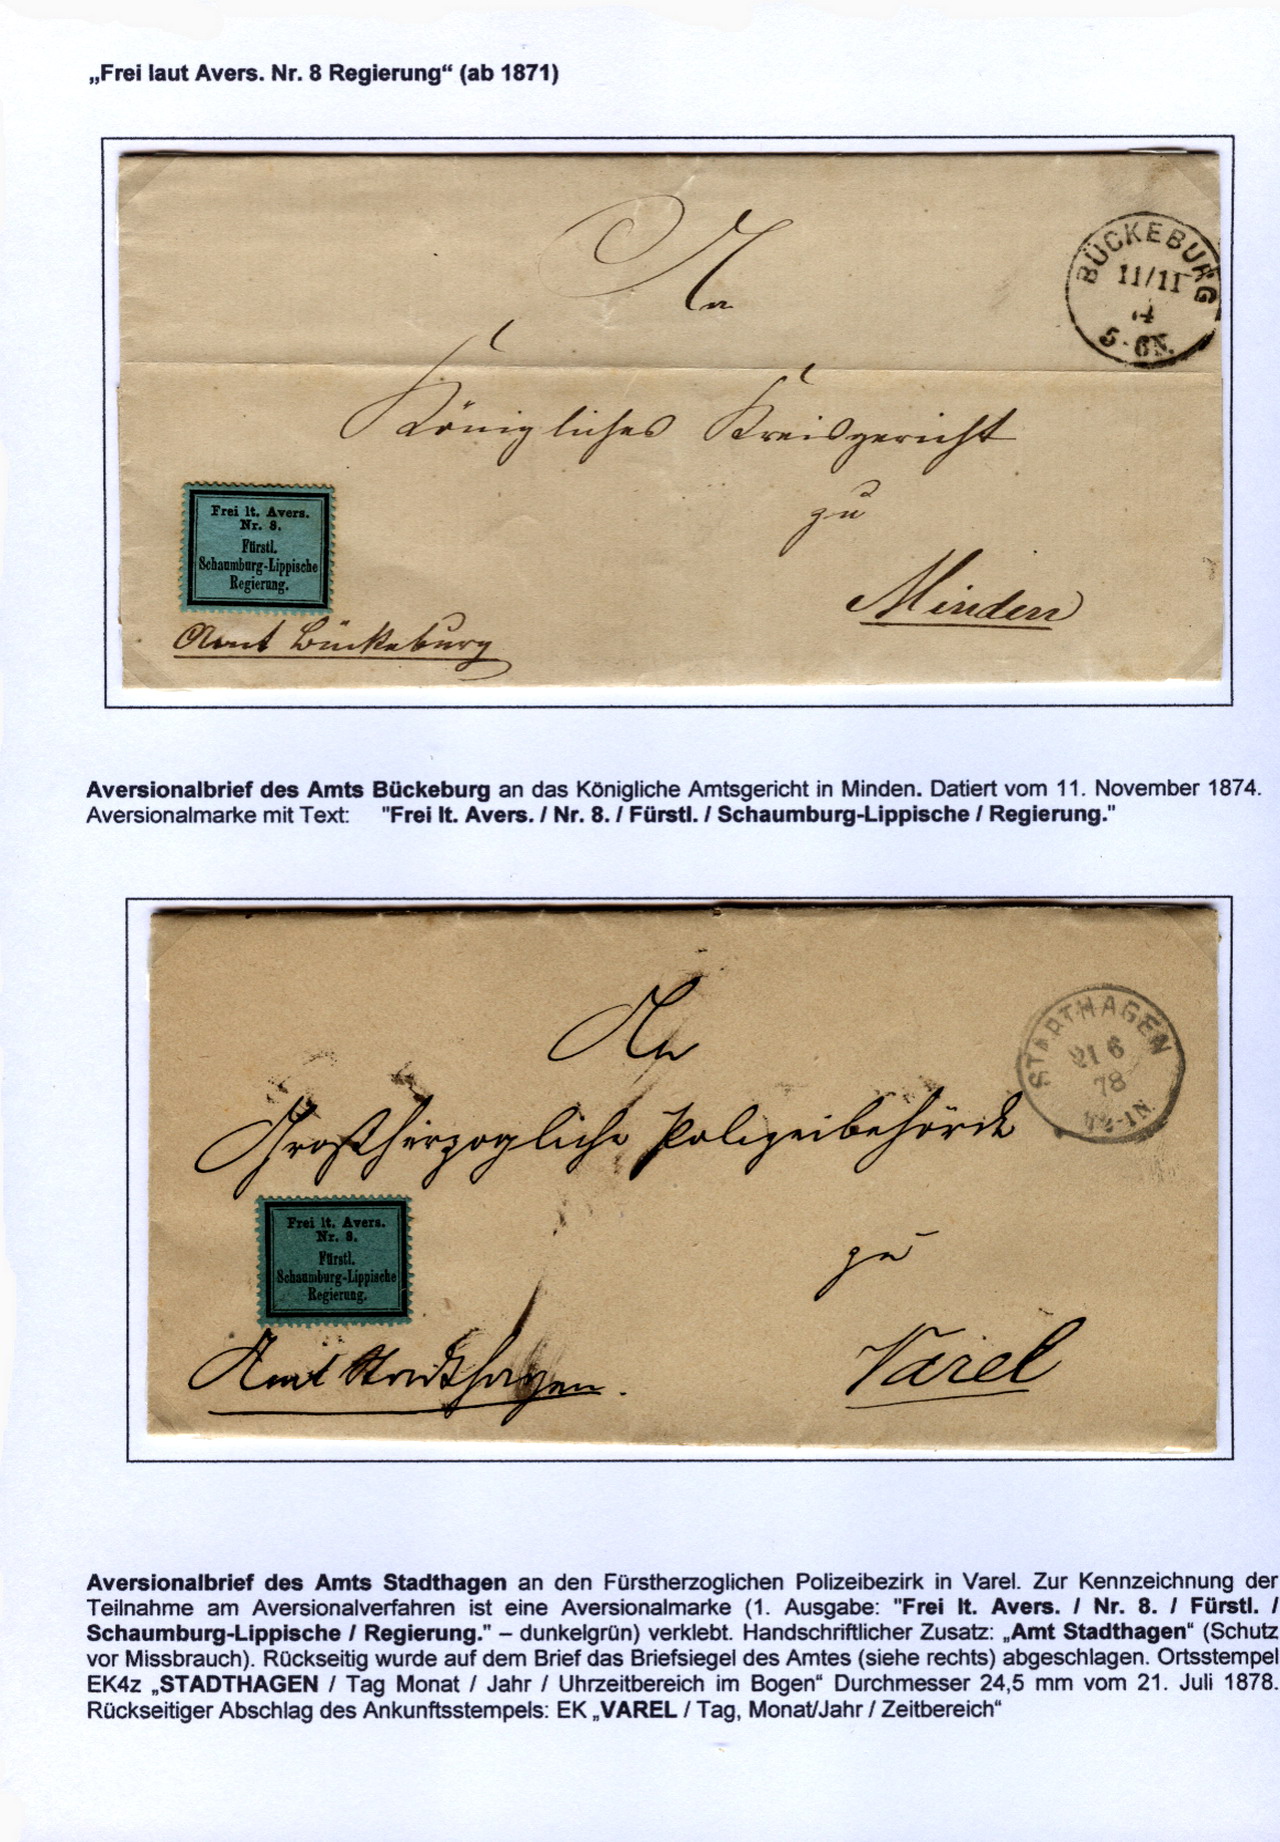 „Frei laut Avers. Nr. 8 Regierung“ (ab 1871)
An
BÜCKEBURG
11/11
4
5-6N.
Königliches Kreisgericht
zu
Minden
Frei lt. Avers.
Nr. 8.
Fürstl.
Schaumburg-Lippische
Regierung.
Amt Bückeburg
Aversionalbrief des Amts Bückeburg an das Königliche Amtsgericht in Minden. Datiert vom 11. November 1874.
Aversionalmarke mit Text: "Frei lt. Avers. / Nr. 8. / Fürstl. / Schaumburg-Lippische / Regierung."
An
STADTHAGEN
21 6
78
12-1N.
Großherzogliche Polizeibehörde
zu
Varel
Frei lt. Avers.
Nr. 8.
Fürstl.
Schaumburg-Lippische
Regierung.
Amt Stadthagen.
Aversionalbrief des Amts Stadthagen an den Fürstherzoglichen Polizeibezirk in Varel. Zur Kennzeichnung der
Teilnahme am Aversionalverfahren ist eine Aversionalmarke (1. Ausgabe: "Frei lt. Avers. / Nr. 8. / Fürstl. /
Schaumburg-Lippische / Regierung." – dunkelgrün) verklebt. Handschriftlicher Zusatz: „Amt Stadthagen“ (Schutz
vor Missbrauch). Rückseitig wurde auf dem Brief das Briefsiegel des Amtes (siehe rechts) abgeschlagen. Ortsstempel
EK4z „STADTHAGEN / Tag Monat / Jahr / Uhrzeitbereich im Bogen“ Durchmesser 24,5 mm vom 21. Juli 1878.
Rückseitiger Abschlag des Ankunftsstempels: EK „VAREL / Tag, Monat/Jahr / Zeitbereich“